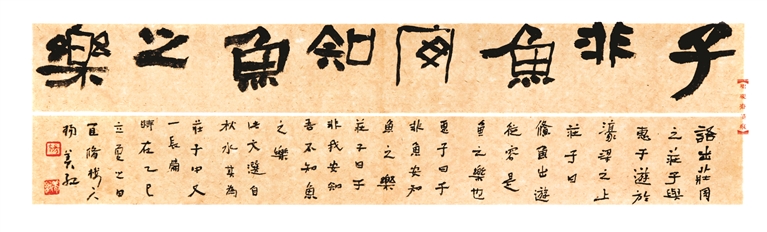 子非魚安知魚之樂
語出莊周
之莊子與
惠子遊於
濠梁之上
莊子曰
儵魚出遊
從容是
魚之樂也
惠子曰子
非魚安知
魚之樂
莊子曰子
非我安知
吾不知魚
之樂
此文選自
秋水其為
莊子中又
一長篇
時在乙巳
立夏之日